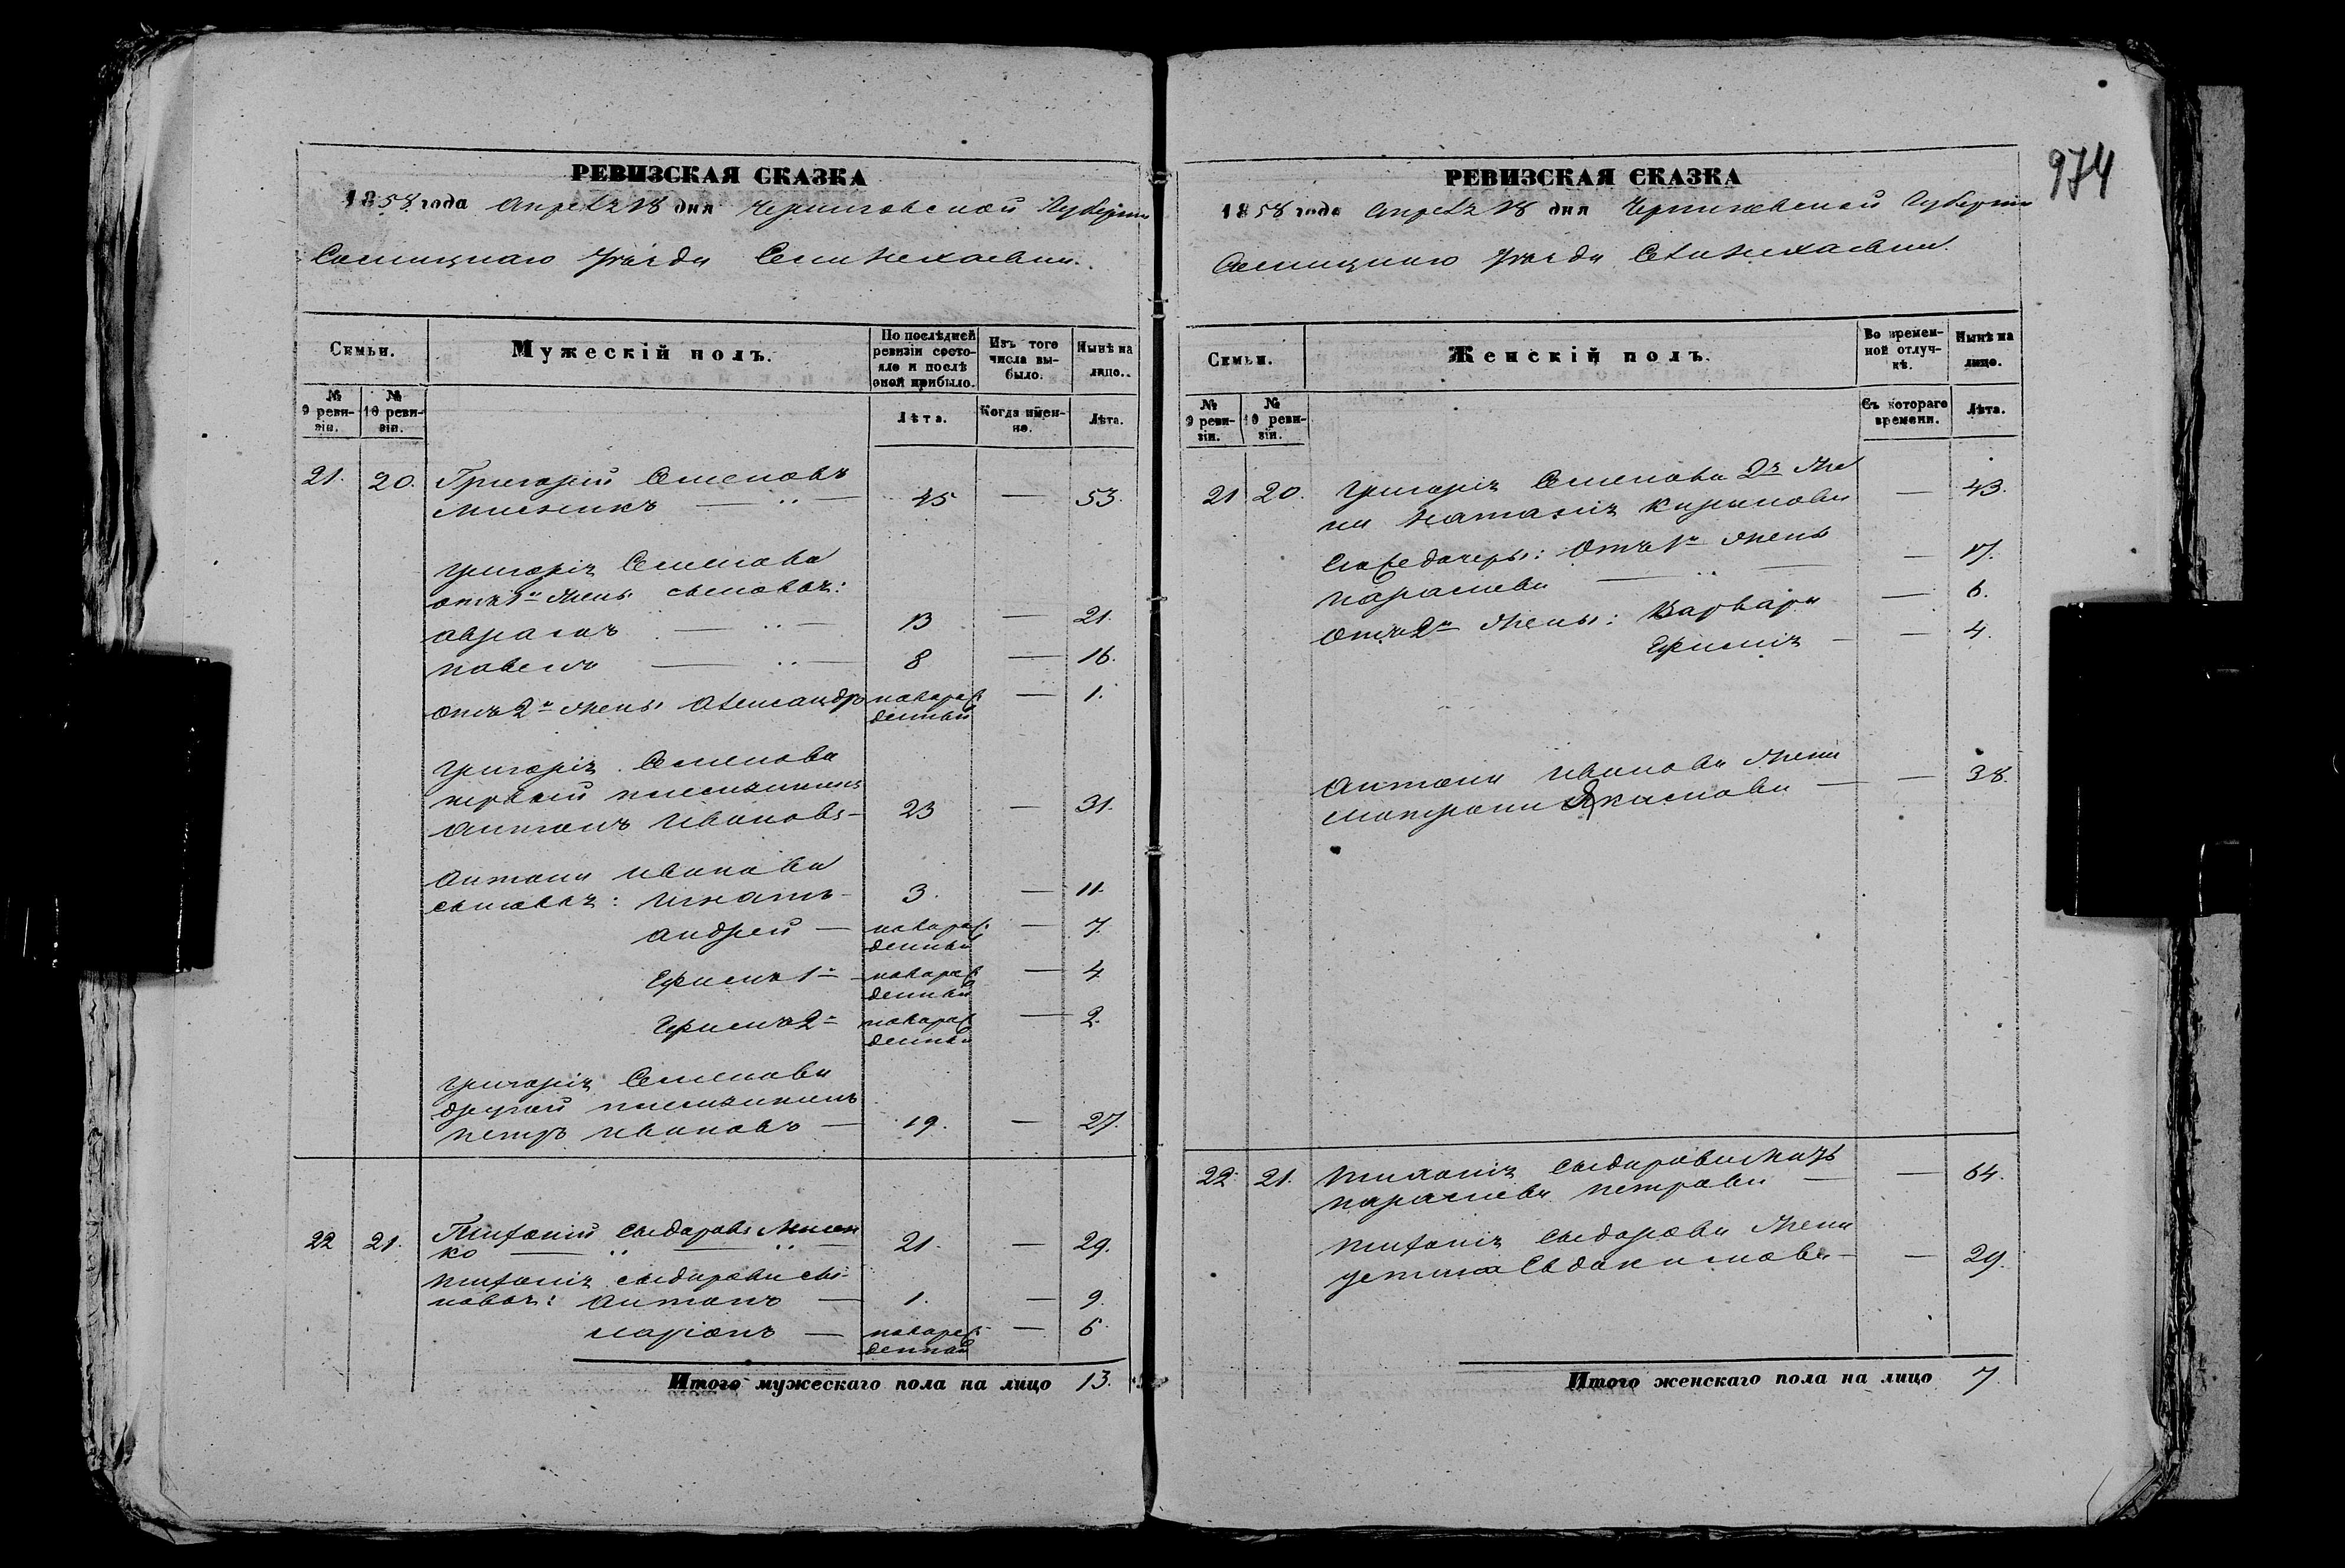 РЕВИЗСКАЯ СКАЗКА
1858 года Апреля 18 дня Черниговской Губернии
Сосницкаго Уезда Села
Семьи.
Мужескій полъ.
По послѣдней ревизіи состояло и послѣ оной прибыло.
Изъ того числа выбыло.
Нынѣ на лицо.
№ 9 ревизіи.
№ 10 ревизіи.
Лѣта.
Когда именно.
Лѣта.
21. 20. Григорій Семеновъ
— 45 — 53.
Григорія Семенова
отъ 1й жены сыновья:
Аврамъ — 13 — 21.
Павелъ — 8 — 16.
отъ 2й жены Александръ новорожденный — 1.
Григорія Семенова
первый племянникъ
Антонъ Ивановъ 23 — 31.
Антона Иванова
сыновья: Игнатъ 3. — 11.
Андрей — новорожденный — 7.
Ефимъ 1й новорожденный — 4
Ефимъ 2й новорожденный — 2.
Григорія Семенова
другой племянникъ
Петръ Ивановъ — 19. — 27.
22 21. Тихоній Сыдоровъ Мисен
ко — 21. — 29.
Тихонія Сыдорова сы-
новья: Антонъ — 1. — 9.
Ларіонъ — новорожденный — 6
Итого мужескаго пола на лицо 13.
974
РЕВИЗСКАЯ СКАЗКА
1858 года Апреля 18 дня Черниговской Губернии
Сосницкаго Уезда Села
Семьи.
Женскій полъ.
Во временной отлучкѣ.
Нынѣ на лицо.
№ 9 ревизіи.
№ 10 ревизіи.
Съ котораго времени.
Лѣта.
21 20. Григорія Семенова 2я же
на Наталія — 43.
Его же дочеры: Отъ 1й жены
Парасцева — 17.
Отъ 2й жены: Варвара — 6.
Ефимія — 4.
Антона Иванова жена
Матрона Якимова — 38.
22. 21. Тихонія Сыдорова мать
Парасцева Петрова — 64.
Тихонія Сыдорова жена
Устина Евдокимова — 29.
Итого женскаго пола на лицо 7